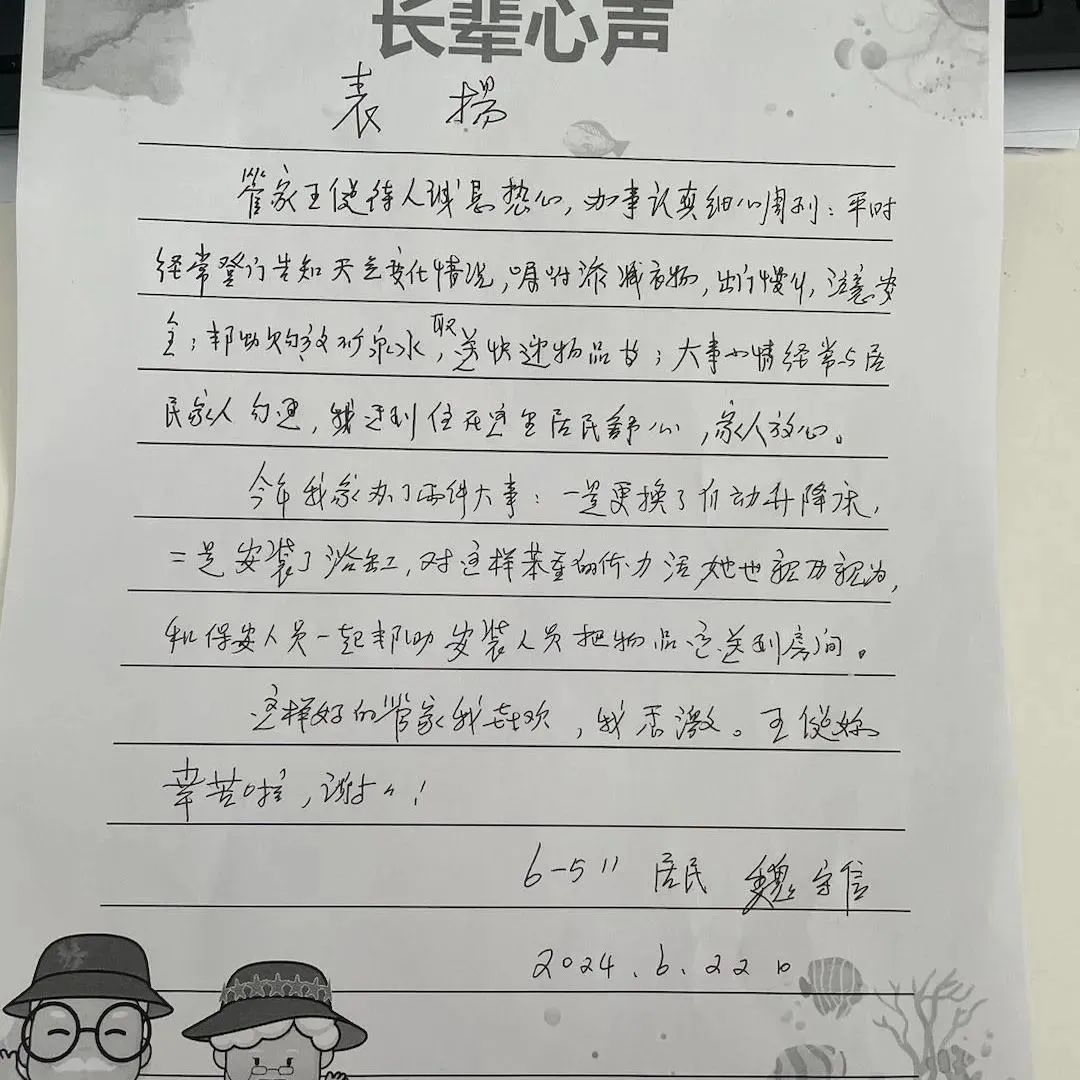 长辈心声
表 扬
管家王倢待人诚恳热心，办事认真细心周到：平时
经常登门告知天气变化情况，嘱咐添减衣物，出行慢行，注意安
全；帮助购放矿泉水，取送快递物品等；大事小情经常与居
民家人勾通，做到住在这里居民舒心，家人放心。
今年我家办了两件大事：一是更换了自动升降床，
二是安装了浴缸，对这样笨重的体力活她也亲历亲为，
和保安人员一起帮助安装人员把物品运送到房间。
这样好的管家我喜欢，我感激。王倢妳
辛苦啦，谢谢！
6-511 居民 魏守信
2024.6.22日